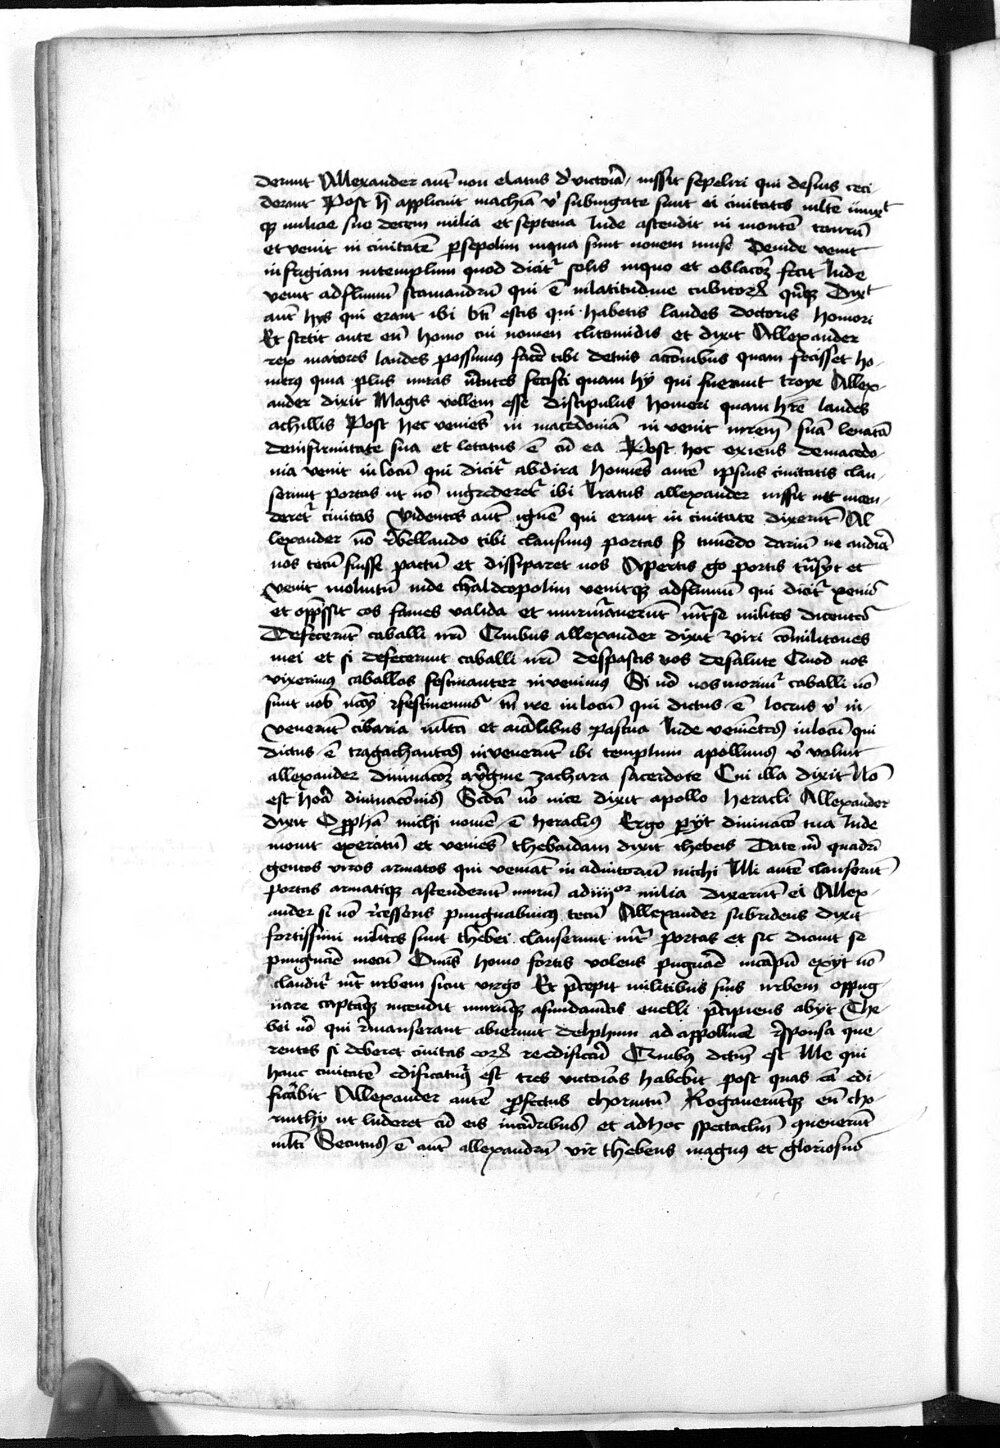 derunt Allexander aut̄ non elatus d' victōia / iussit sepeliri qui desuis ceci
derant Post h̄ applicuit machiā v̄ subiugate sunt ei ciuitates multe iunxt
qȝ milicie sue decem milia et septena Inde ascendit in montē taurū
et venit in ciuitatē p̄sepolim inqua sunt nouem muse Deinde venit
infrigiam intemplum quod dicit᷑ solis inquo et oblacōȝ fecit Inde
venit adflumū scamandrū qui ē inlatitudine cubitorꝝ qn̄qȝ Dixt
aut̄ hys qui erant ibi bt̄i estis qui habetis laudes doctoris homori
Et stetit ante eū homo cui nomen clitomidis et dixit Allexander
rex maiores laudes possumꝰ facē tibi detuis accōnibus quam fecisset ho-
merꝰ quia plus miras v̄tutes fecisti quam hy qui fuerunt troye Allex-
ander dixit Magis vollem esse discipulus homeri quam hr̄e laudes
achillis Post hec venies̄ in macedoniā in venit mr̄em suā leuatā
deinfirmitate sua et letatus ē cū ea Post hoc exiens demacedo-
nia venit in locū qui dicit᷑ abdira homines autē ipsius ciuitatis clau-
serunt portas ut nō ingrederet᷑ ibi Iratus allexander iussit ut incen-
deret᷑ ciuitas Videntes aut̄ ignē qui erant in ciuitate dixerūt Al
lexander nō r̄bellando tibi clausimus portas sꝫ timēdo dariū ne audiā
nos tecū fuisse pactū et dissiparet nos Apertis gͦ portis tn̄syt et
venit inde chaldeopolim venitqȝ adflumū qui dicit᷑ xeniꝰ
et opp̄ssit eos fames valida et murm̄auerūt int̄se milites dicentes
Defecerūt caballi nr̄i Quibus allexander dixit viri cōmilitones
mei et si defecerunt caballi nr̄i despactis vos desalute Quod nos
vixerimus caballos festinanter inveniemꝰ Si nō nos morim᷑ caballi nō
sunt nob̄ necc̄ȝ festinemꝰ ire in locū qui dictus ē locrus v̄ in-
venerūt cibaria mlt̄a et aīalibus pastua Inde venietes̄ inlocū qui
dictus ē tragachantes̄ invenerūt ibi templum apollinis v̄ voluit
allexander diuinacōȝ a v̄gine zachara sacerdote Cui illa dixit Nō
est horā diuinacōnis Scd̄a v̄o vice dixit apollo heracli Allexander
dixit O ꝓphā michi nomē ē heraclius Ergo p̄iyt diuinacō tua Inde
mouit exercitū et venies̄ thebaidam dixit thebeis Date m̄ quadri
gentos viros armatos qui veniāt in adiutoriū michi Illi autē clauserūt
portas armatiqȝ ascenderūt murū adiiij milia dixerūt ei Allex-
ander si nō r̄cesseris pungnabimus tecū Allexander subridens dixit
fortissimi milites sunt thebei clauserunt int̄ portas et sic dicunt se
pungnare mecū Om̄is homo fortis volens pugnare incāpū exiyt nō
claudit᷑ int̄ urbem sicut virgo Et p̄cepit militibus suis urbem oppug-
nare captāqȝ incendit murūqȝ afundamētis euelli p̄cipiens abiyt The
bei v̄o qui r̄manserant abierunt delphum ad appollinē r̄sponsa que-
rentes si deberet ciuitas eorꝝ reedificari Quibꝰ dictū est Ille qui
hanc ciuitatē edificaturꝰ est tres victorias habebit post quas eā edi-
ficabit Allexander autē ꝓfectus chorintū Rogaueruntqȝ eū cho-
rinthy ut luderet cū eis incuribus et adhoc spectaclm̄ queuerūt
mlt̄i Secutus ē aut̄ allexandrū vir thebeus magnꝰ et gloriosus